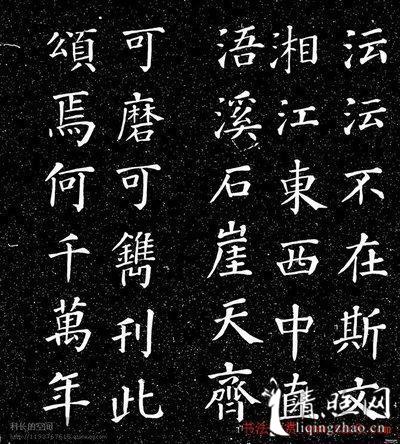 沄沄不在斯文
湘江東西中直
浯溪石崖天齊
可磨可鐫刊此
頌焉何千萬年
科长的空间
liqingzhao.cn